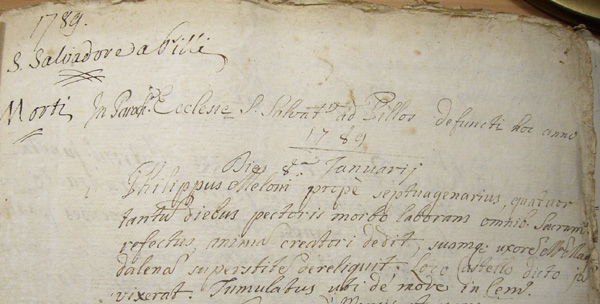 1789.
S. Salvadore a Pilli
Morti
In Paroch. Ecclesie S. Salvat.ris ad Pillos defuncti hoc anno
1789
Dies 8.a Januarij
1. Philippus Meloni prope septuagenarius, quatuor
tantu diebus pectoris morbo laborans omnib. Sacram.
refectus, anima creatori dedit, suamq. uxore M.a Mag
dalena superstite dereliquit; Loco Castello dicto
vixerat. Tumulatus ubi de more in Cem.